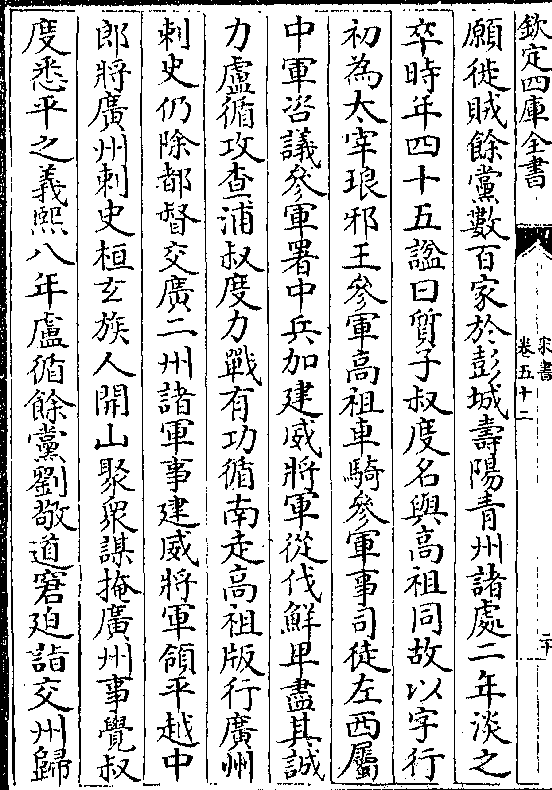 欽定四庫全書
宋書
卷五十二
二十
願徙賊餘黨數百家於彭城壽陽青州諸處二年淡之
卒時年四十五諡曰質子叔度名與高祖同故以字行
初為太宰琅邪王參軍高祖車騎參軍事司徒左西屬
中軍咨議參軍署中兵加建威將軍從伐鮮卑盡其誠
力盧循攻查浦叔度力戰有功循南走高祖版行廣州
刺史仍除都督交廣二州諸軍事建威將軍領平越中
郎將廣州刺史桓玄族人開山聚衆謀掩廣州事覺叔
度悉平之義熙八年盧循餘黨劉敬道窘迫詣交州歸